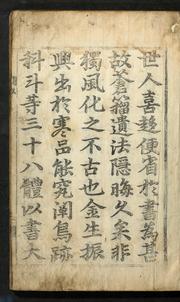 世人喜趍便省於書為甚
故蒼籀遺法隱晦久矣非
獨風化之不古也金生振
興出於寒品能究闡鳥跡
科斗等三十八體以書大